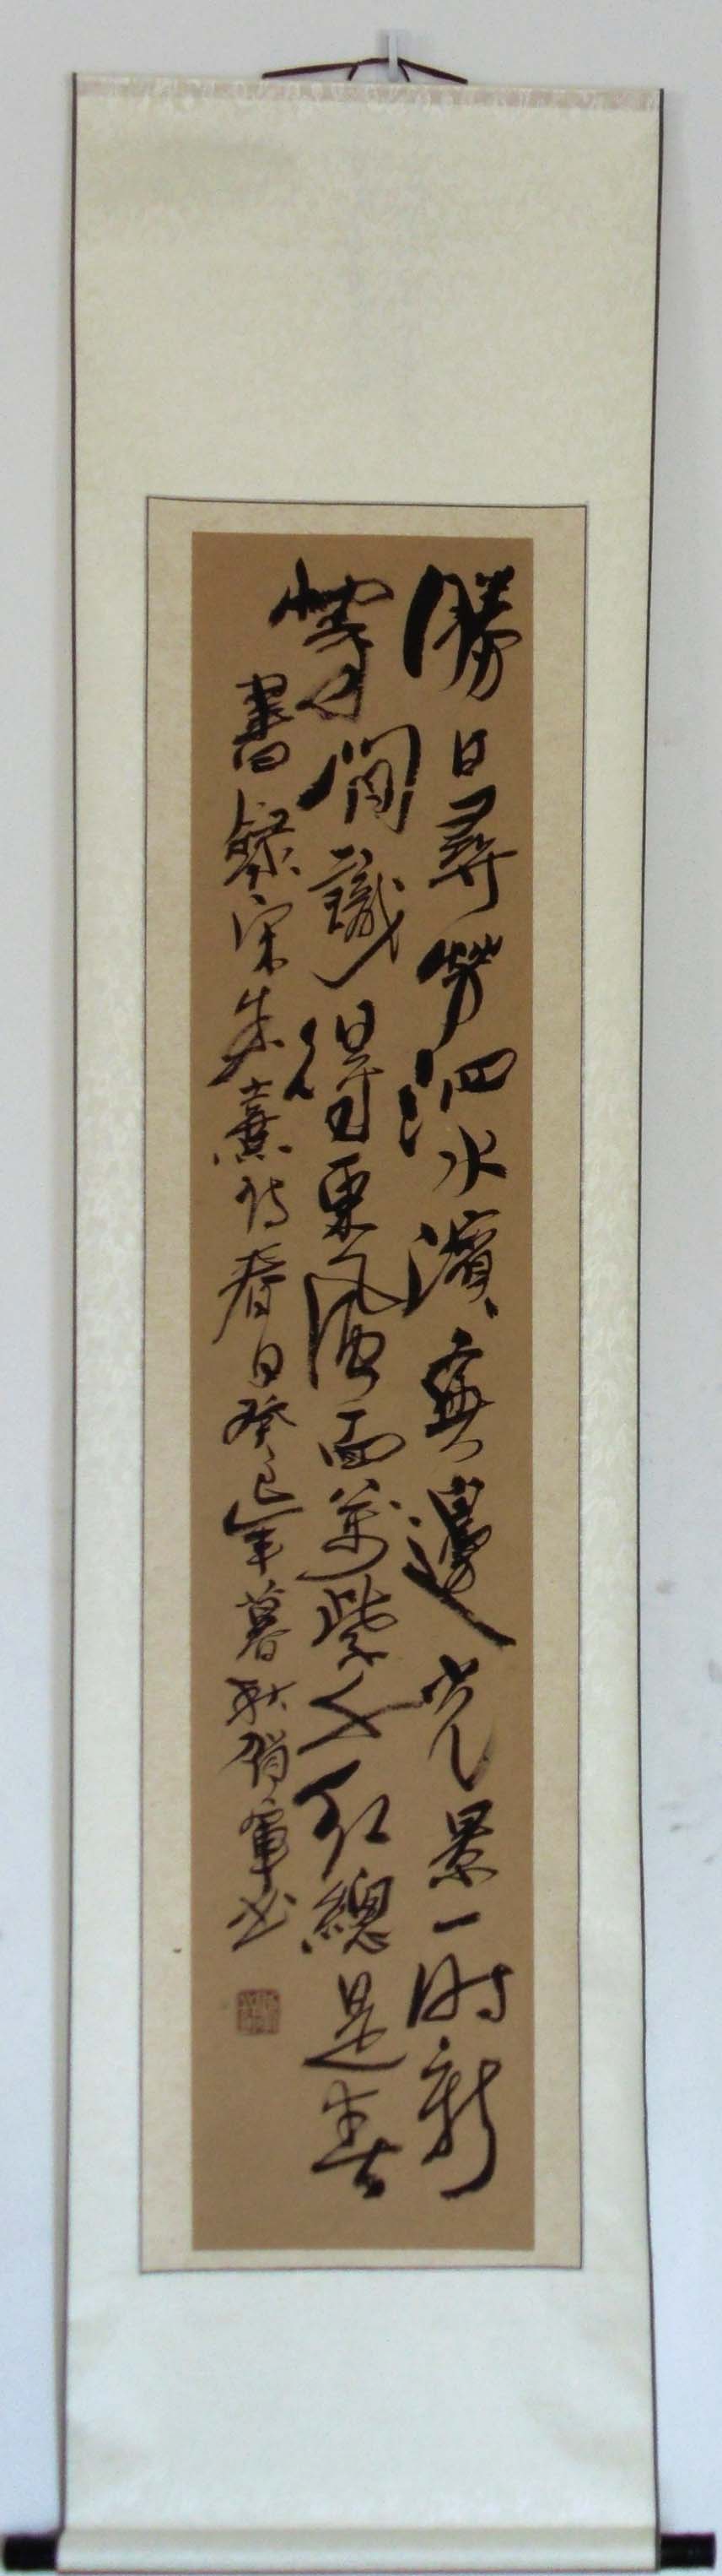 勝日尋芳泗水濱無邊光景一時新
等閒識得東風面萬紫千紅總是春
書錄宋朱熹詩春日癸巳年暮秋軍書